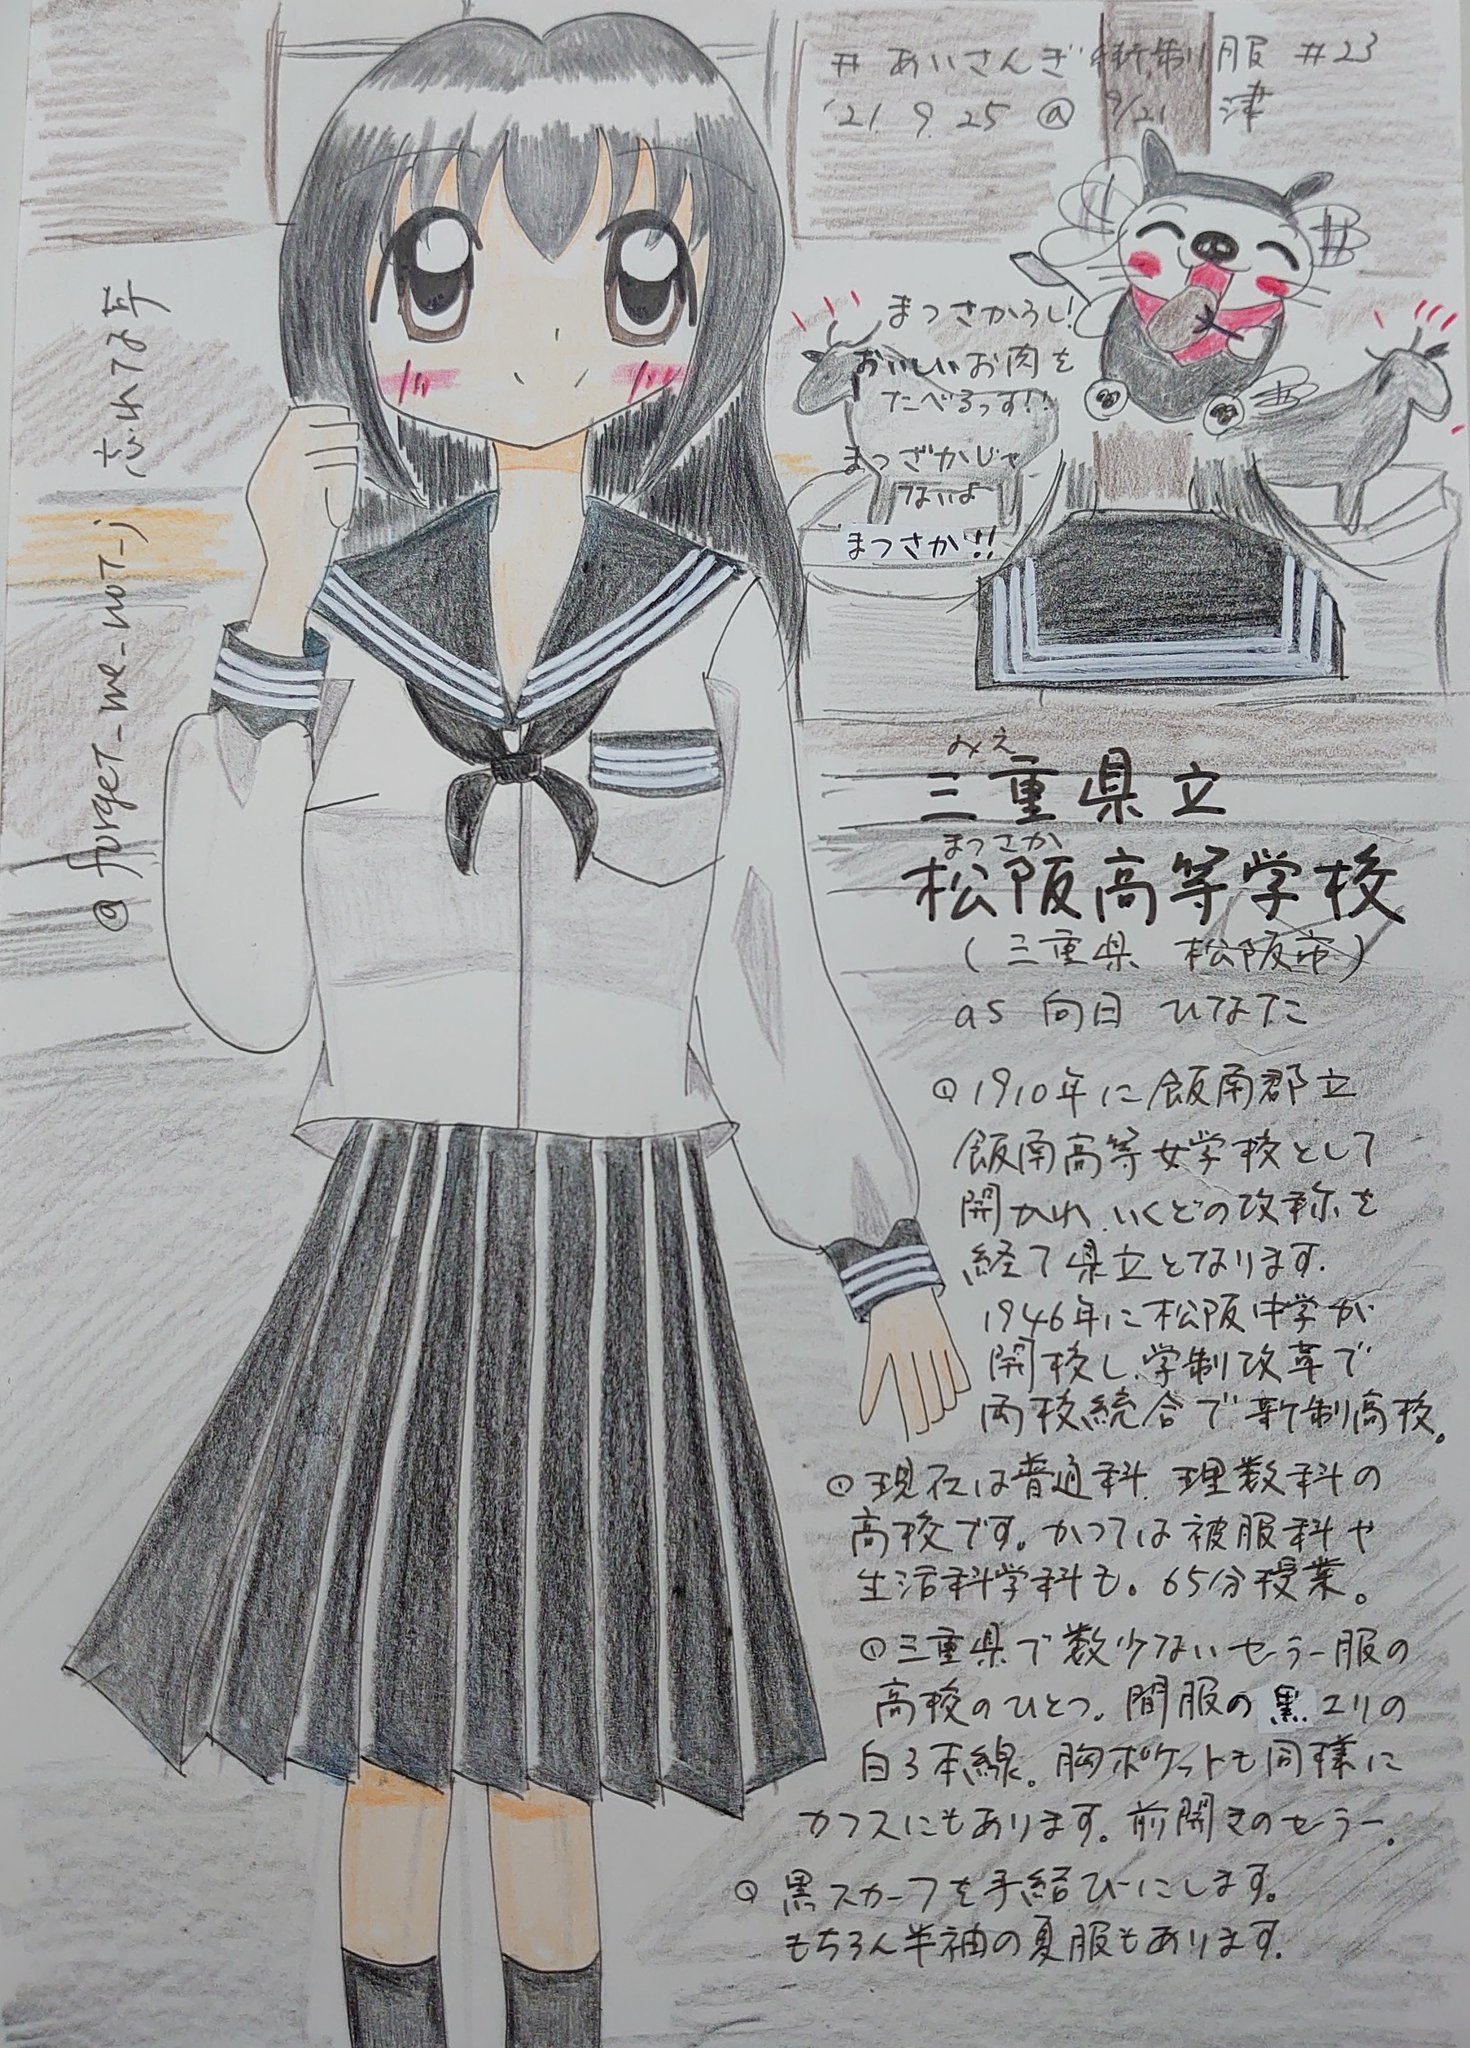 # あいさんぎ新制服 #23
'21.9.25 @ 9/21 津
まつさかうし!
おいしいお肉を
たべるっす!!
まつざかじゃ
ないよ
まつさか!!
@forget_me_not_j 忘れな草
みえ
三重県立
まつさか
松阪高等学校
(三重県 松阪市)
as 向日 ひなた
1910年に飯南郡立
飯南高等女学校として
開かれ、いくどの改称を
経て県立となります.
1946年に松阪中学が
開校し、学制改革で
両校統合で新制高校。
現在は普通科、理数科の
高校です。かつては被服科や
生活科学科も。65分授業。
三重県で数少ないセーラー服の
高校のひとつ。間服の黒エリの
白3本線。胸ポケットも同様に
カフスにもあります。前開きのセーラー。
黒スカーフを手結びにします。
もちろん半袖の夏服もあります.